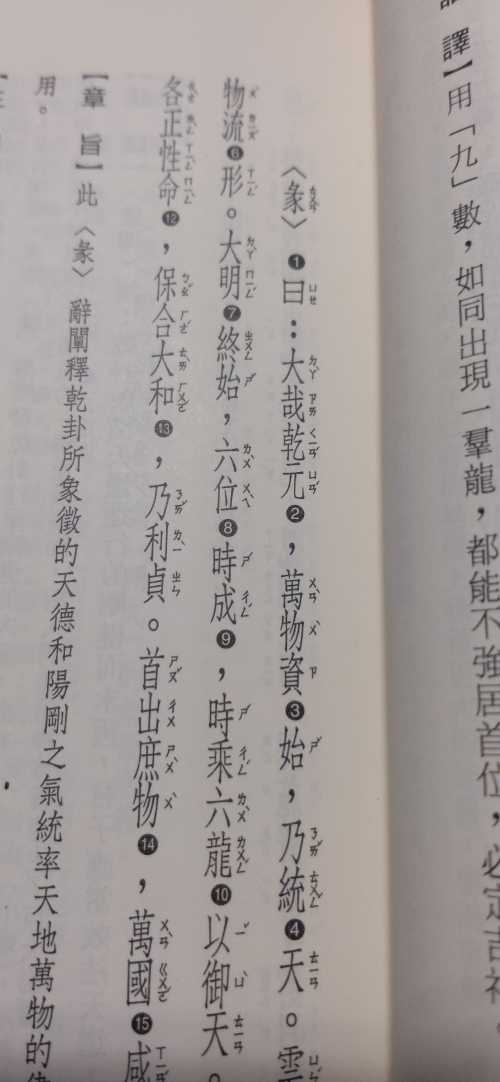 譯】用「九」數，如同出現一羣龍，都能不強居首位，必定吉祥。
〈彖〉❶曰：大哉乾元❷，萬物資❸始，乃統❹天。雲
物流❻形。大明❼終始，六位❽時成❾，時乘六龍❿以御天。
各正性命⓬，保合大和⓭，乃利貞。首出庶物⓮，萬國⓯咸
【章旨】此〈彖〉辭闡釋乾卦所象徵的天德和陽剛之氣統率天地萬物的
用。